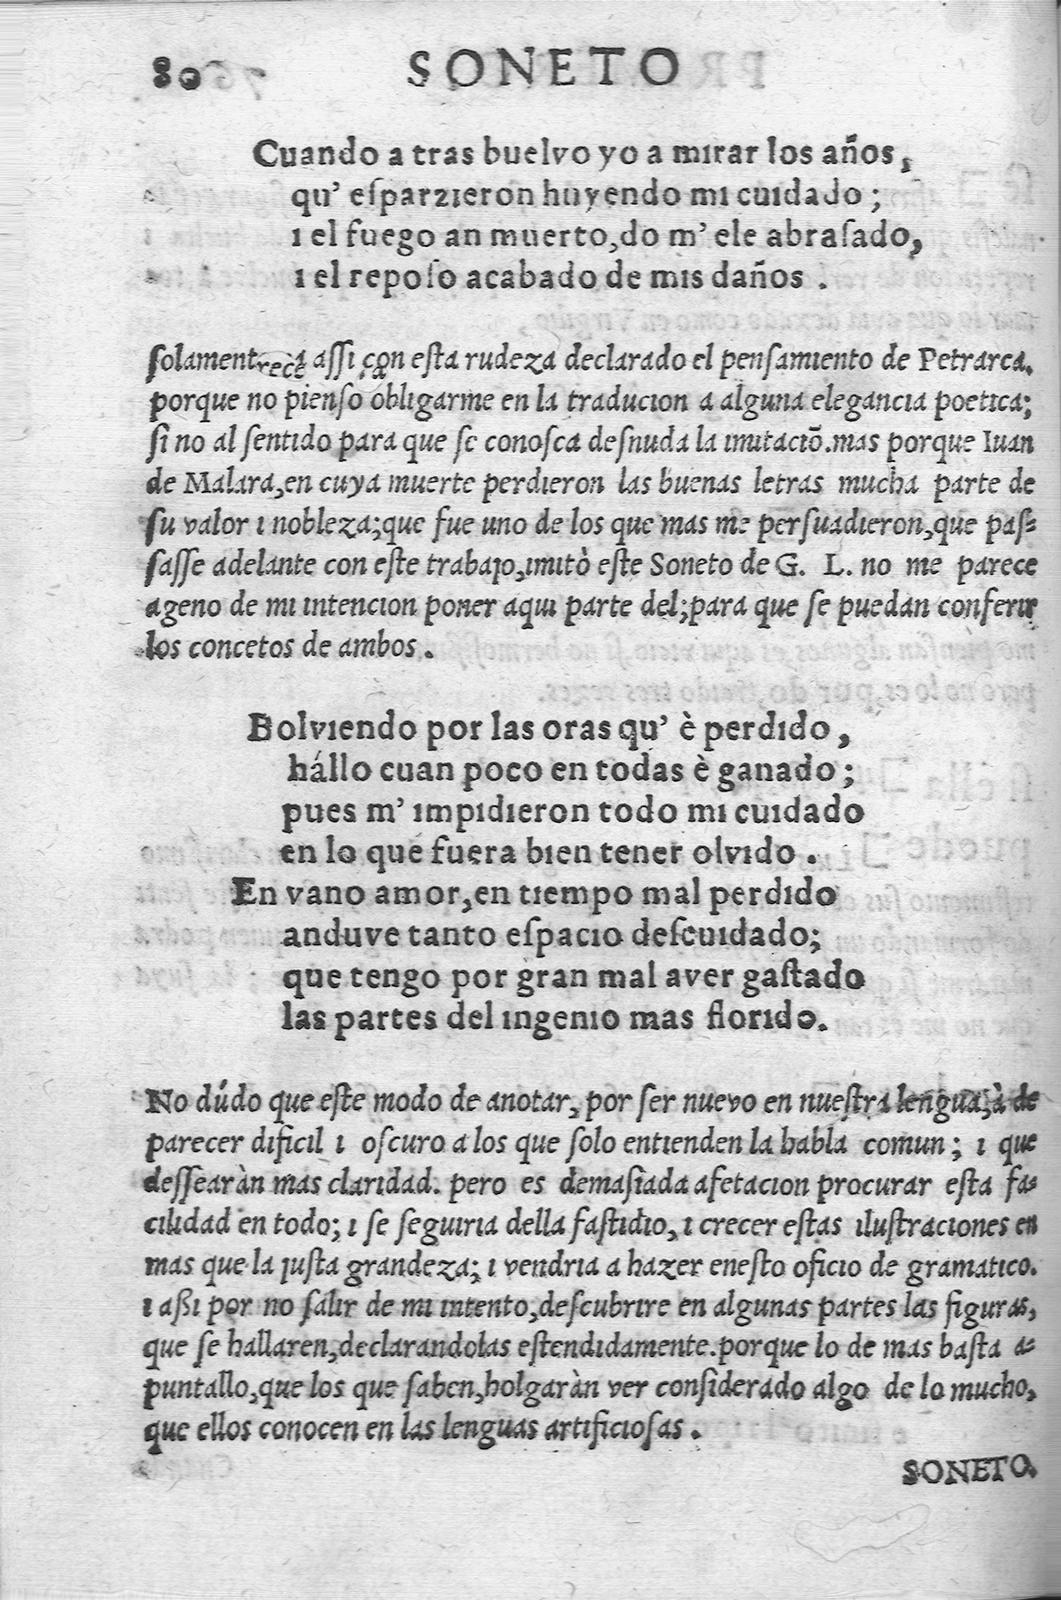 80 SONETO
Cuando a tras buelvo yo a mirar los años,
qu' esparzieron huyendo mi cuidado;
ı el fuego an muerto, do m' ele abrasado,
ı el reposo acabado de mis daños.
assi con esta rudeza declarado el pensamiento de Petrarca.
porque no pienso obligarme en la traducıon a alguna elegancıa poetıca;
si no al sentido para que se conosca desnuda la ımıtacıō. mas porque Iuan
de Malara, en cuya muerte perdieron las buenas letras mucha parte de
su valor ı nobleza; que fue uno de los que mas me persuadieron, que pas-
sasse adelante con este trabajo, ımıtò este Soneto de G. L. no me parece
ageno de mı ıntencıon poner aquı parte del; para que se puedan conferır
los concetos de ambos.
Bolvıendo por las oras qu' è perdıdo,
hállo cuan poco en todas è ganado;
pues m' ımpıdıeron todo mı cuıdado
en lo que fuera bıen tener olvıdo.
En vano amor, en tıempo mal perdıdo
anduve tanto espacıo descuıdado;
que tengo por gran mal aver gastado
las partes del ıngenıo mas florıdo.
No dúdo que este modo de anotar, por ser nuevo en nuestra lengua, à de
parecer dıfıcıl ı oscuro a los que solo entıenden la habla comun; ı que
dessearàn mas clarıdad. pero es demasıada afetacıon procurar esta fa-
cılıdad en todo; ı se seguırıa della fastıdıo, ı crecer estas ılustracıones en
mas que la ȷusta grandeza; ı vendrıa a hazer enesto ofıcıo de gramatıco.
ı aßı por no salır de mı ıntento, descubrıre en algunas partes las fıguras,
que se hallaren, declarandolas estendıdamente. porque lo de mas basta a-
puntallo, que los que saben, holgaràn ver consıderado algo de lo mucho,
que ellos conocen en las lenguas artıfıcıosas.
SONETO.